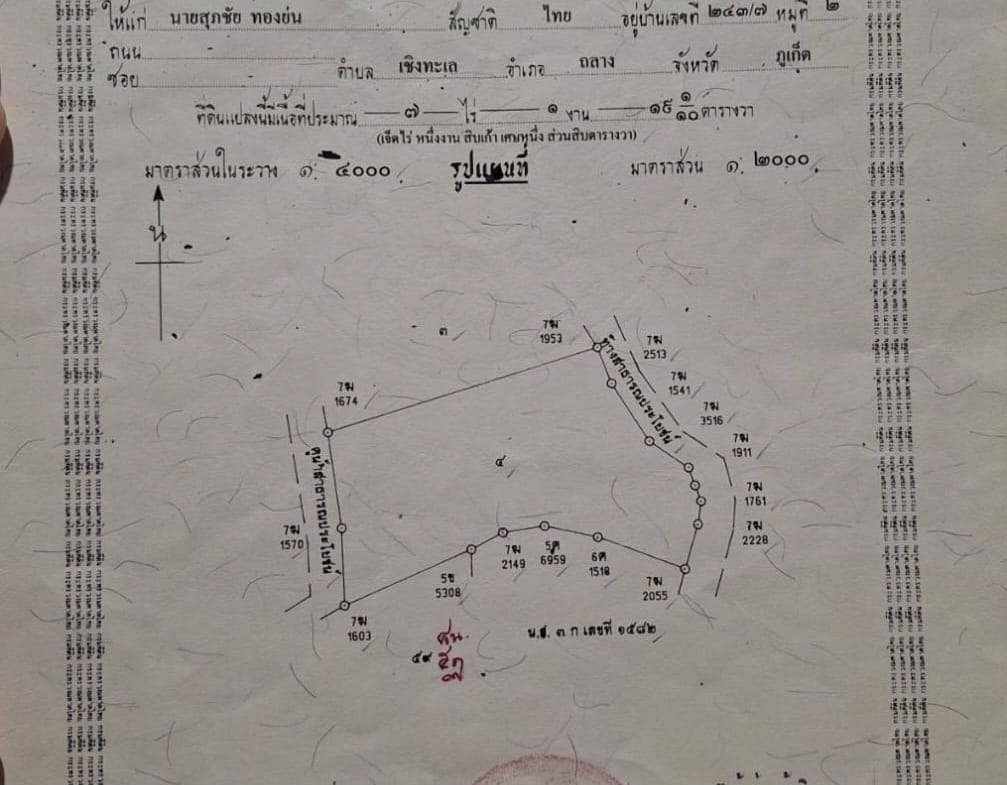 ให้แก่ นายสุภชัย ทองย่น สัญชาติ ไทย อยู่บ้านเลขที่ ๒๔๓/๗ หมู่ที่ ๒
ถนน
ซอย ตำบล เชิงทะเล อำเภอ ถลาง จังหวัด ภูเก็ต
ที่ดินแปลงนี้มีเนื้อที่ประมาณ ๗ ไร่ ๑ งาน ๑๙ ๑/๑๐ ตารางวา
(เจ็ดไร่ หนึ่งงาน สิบเก้า เศษหนึ่ง ส่วนสิบตารางวา)
มาตราส่วนในระวาง ๑: ๔๐๐๐ รูปแผนที่ มาตราส่วน ๑: ๒๐๐๐
น
๓
7ฒ
1953
7ฒ
2513
7ฒ
1541
7ฒ
3516
7ฒ
1911
7ฒ
1761
7ฒ
2228
7ฒ
1674
ทางสาธารณประโยชน์
๔
คูน้ำสาธารณประโยชน์
7ฒ
1570
7ฒ
1603
5ข
5308
7ฒ
2149
5ฎ
6959
6ศ
1518
7ฒ
2055
น.ส. ๓ ก เลขที่ ๑๕๘๒
๕๙